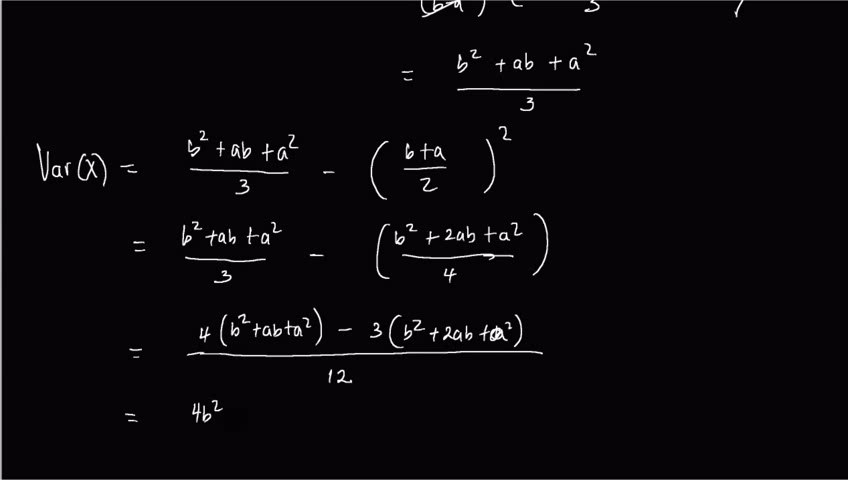 = b² + ab + a² / 3
Var(X) = b² + ab + a² / 3 - ( b + a / 2 )²
= b² + ab + a² / 3 - ( b² + 2ab + a² / 4 )
= 4 ( b² + ab + a² ) - 3 ( b² + 2ab + a² ) / 12
= 4b²